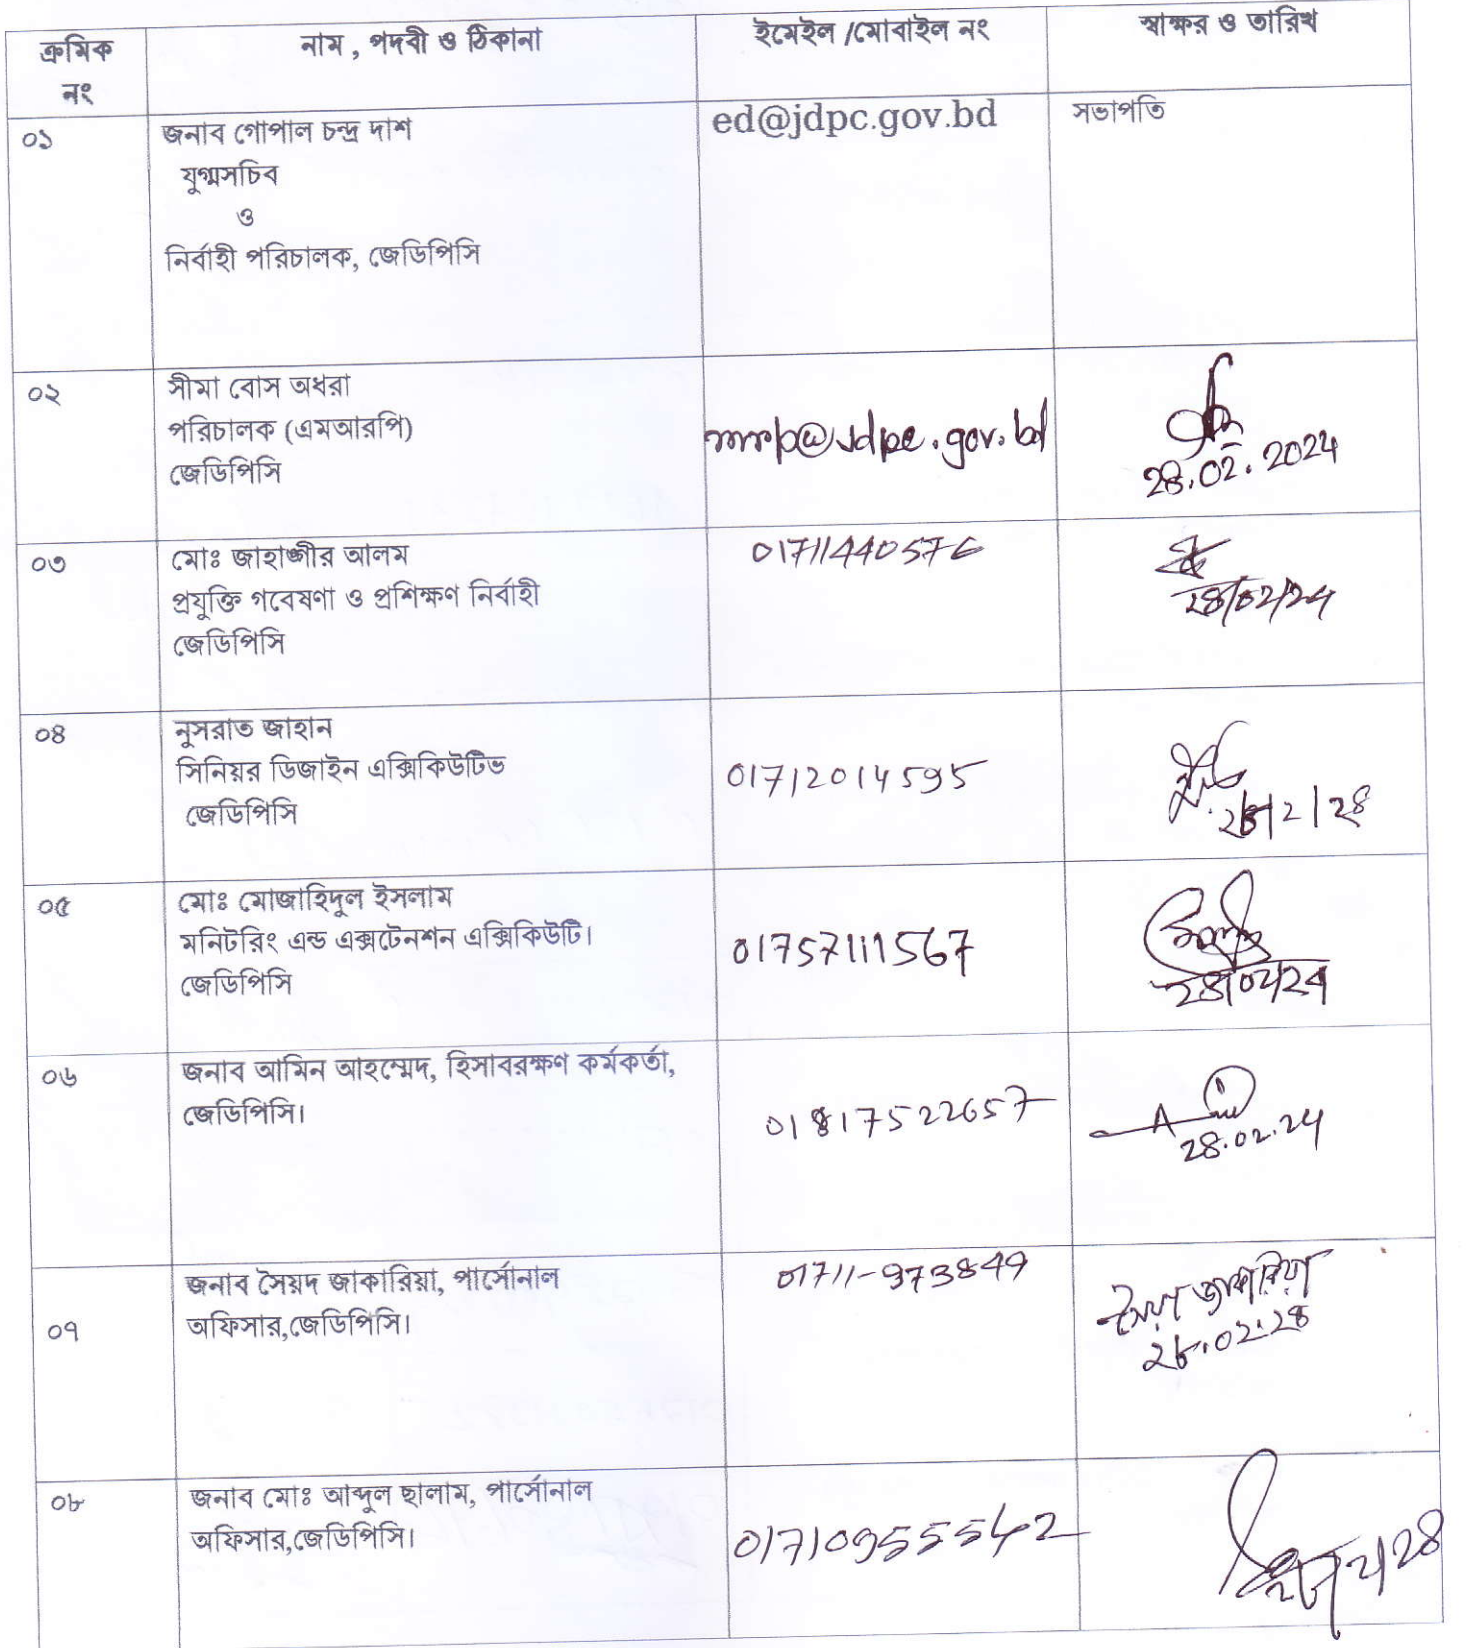 ক্রমিক নং
নাম , পদবী ও ঠিকানা
ইমেইল /মোবাইল নং
স্বাক্ষর ও তারিখ
০১
জনাব গোপাল চন্দ্র দাশ
যুগ্মসচিব
ও
নির্বাহী পরিচালক, জেডিপিসি
ed@jdpc.gov.bd
সভাপতি
০২
সীমা বোস অধরা
পরিচালক (এমআরপি)
জেডিপিসি
mrp@jdpc.gov.bd
28.02.2024
০৩
মোঃ জাহাঙ্গীর আলম
প্রযুক্তি গবেষণা ও প্রশিক্ষণ নির্বাহী
জেডিপিসি
01711440576
28/02/24
০৪
নুসরাত জাহান
সিনিয়র ডিজাইন এক্সিকিউটিভ
জেডিপিসি
01712014595
২৮/২/২৪
০৫
মোঃ মোজাহিদুল ইসলাম
মনিটরিং এন্ড এক্সটেনশন এক্সিকিউটি।
জেডিপিসি
01757111567
28/02/24
০৬
জনাব আমিন আহম্মেদ, হিসাবরক্ষণ কর্মকর্তা,
জেডিপিসি।
01817522657
28.02.24
০৭
জনাব সৈয়দ জাকারিয়া, পার্সোনাল
অফিসার,জেডিপিসি।
01711-973849
সৈয়দ জাকারিয়া
২৮.০২.২৪
০৮
জনাব মোঃ আব্দুল ছালাম, পার্সোনাল
অফিসার,জেডিপিসি।
01710955542